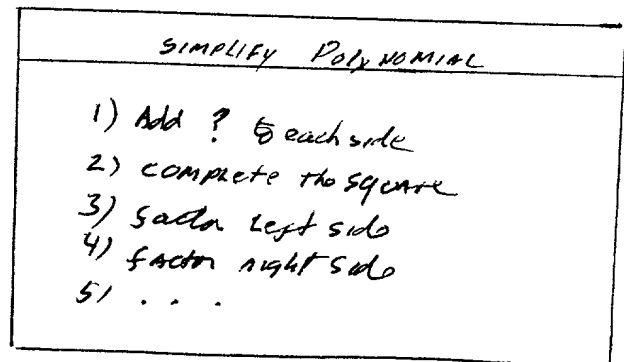 SIMPLIFY POLYNOMIAL
1) Add ? to each side
2) COMPLETE the SQUARE
3) factor Left side
4) factor right side
5) . . .